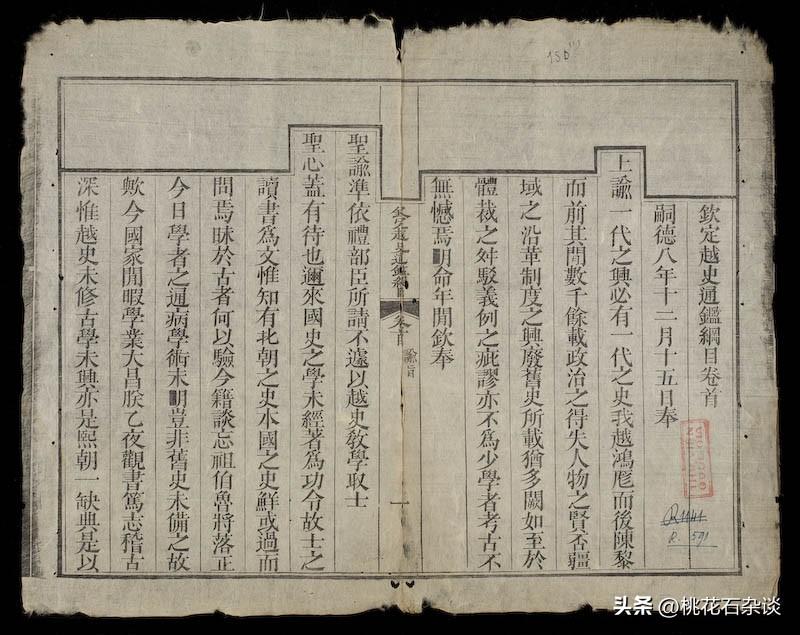 150
欽定越史通鑑綱目卷首
嗣德八年十二月十五日奉
上諭一代之興必有一代之史我越鴻厖而後陳黎
而前其間數千餘載政治之得失人物之賢否疆
域之沿革制度之興廢舊史所載猶多闕如至於
體裁之舛駁義例之疵謬亦不為少學者考古不
無憾焉明命年間欽奉
欽定越史通鑑綱目 卷首 諭旨 一
聖諭準依禮部臣所請不遽以越史敎學取士
聖心蓋有待也邇來國史之學未經著為功令故士之
讀書為文惟知有北朝之史本國之史鮮或過而
問焉昧於古者何以驗今籍談忘祖伯魯將落正
今日學者之通病學術未明豈非舊史未備之故
歟今國家閒暇學業大昌朕乙夜觀書篤志稽古
深惟越史未修古學未興亦是熙朝一缺典是以
R. 591
头条 @桃花石杂谈